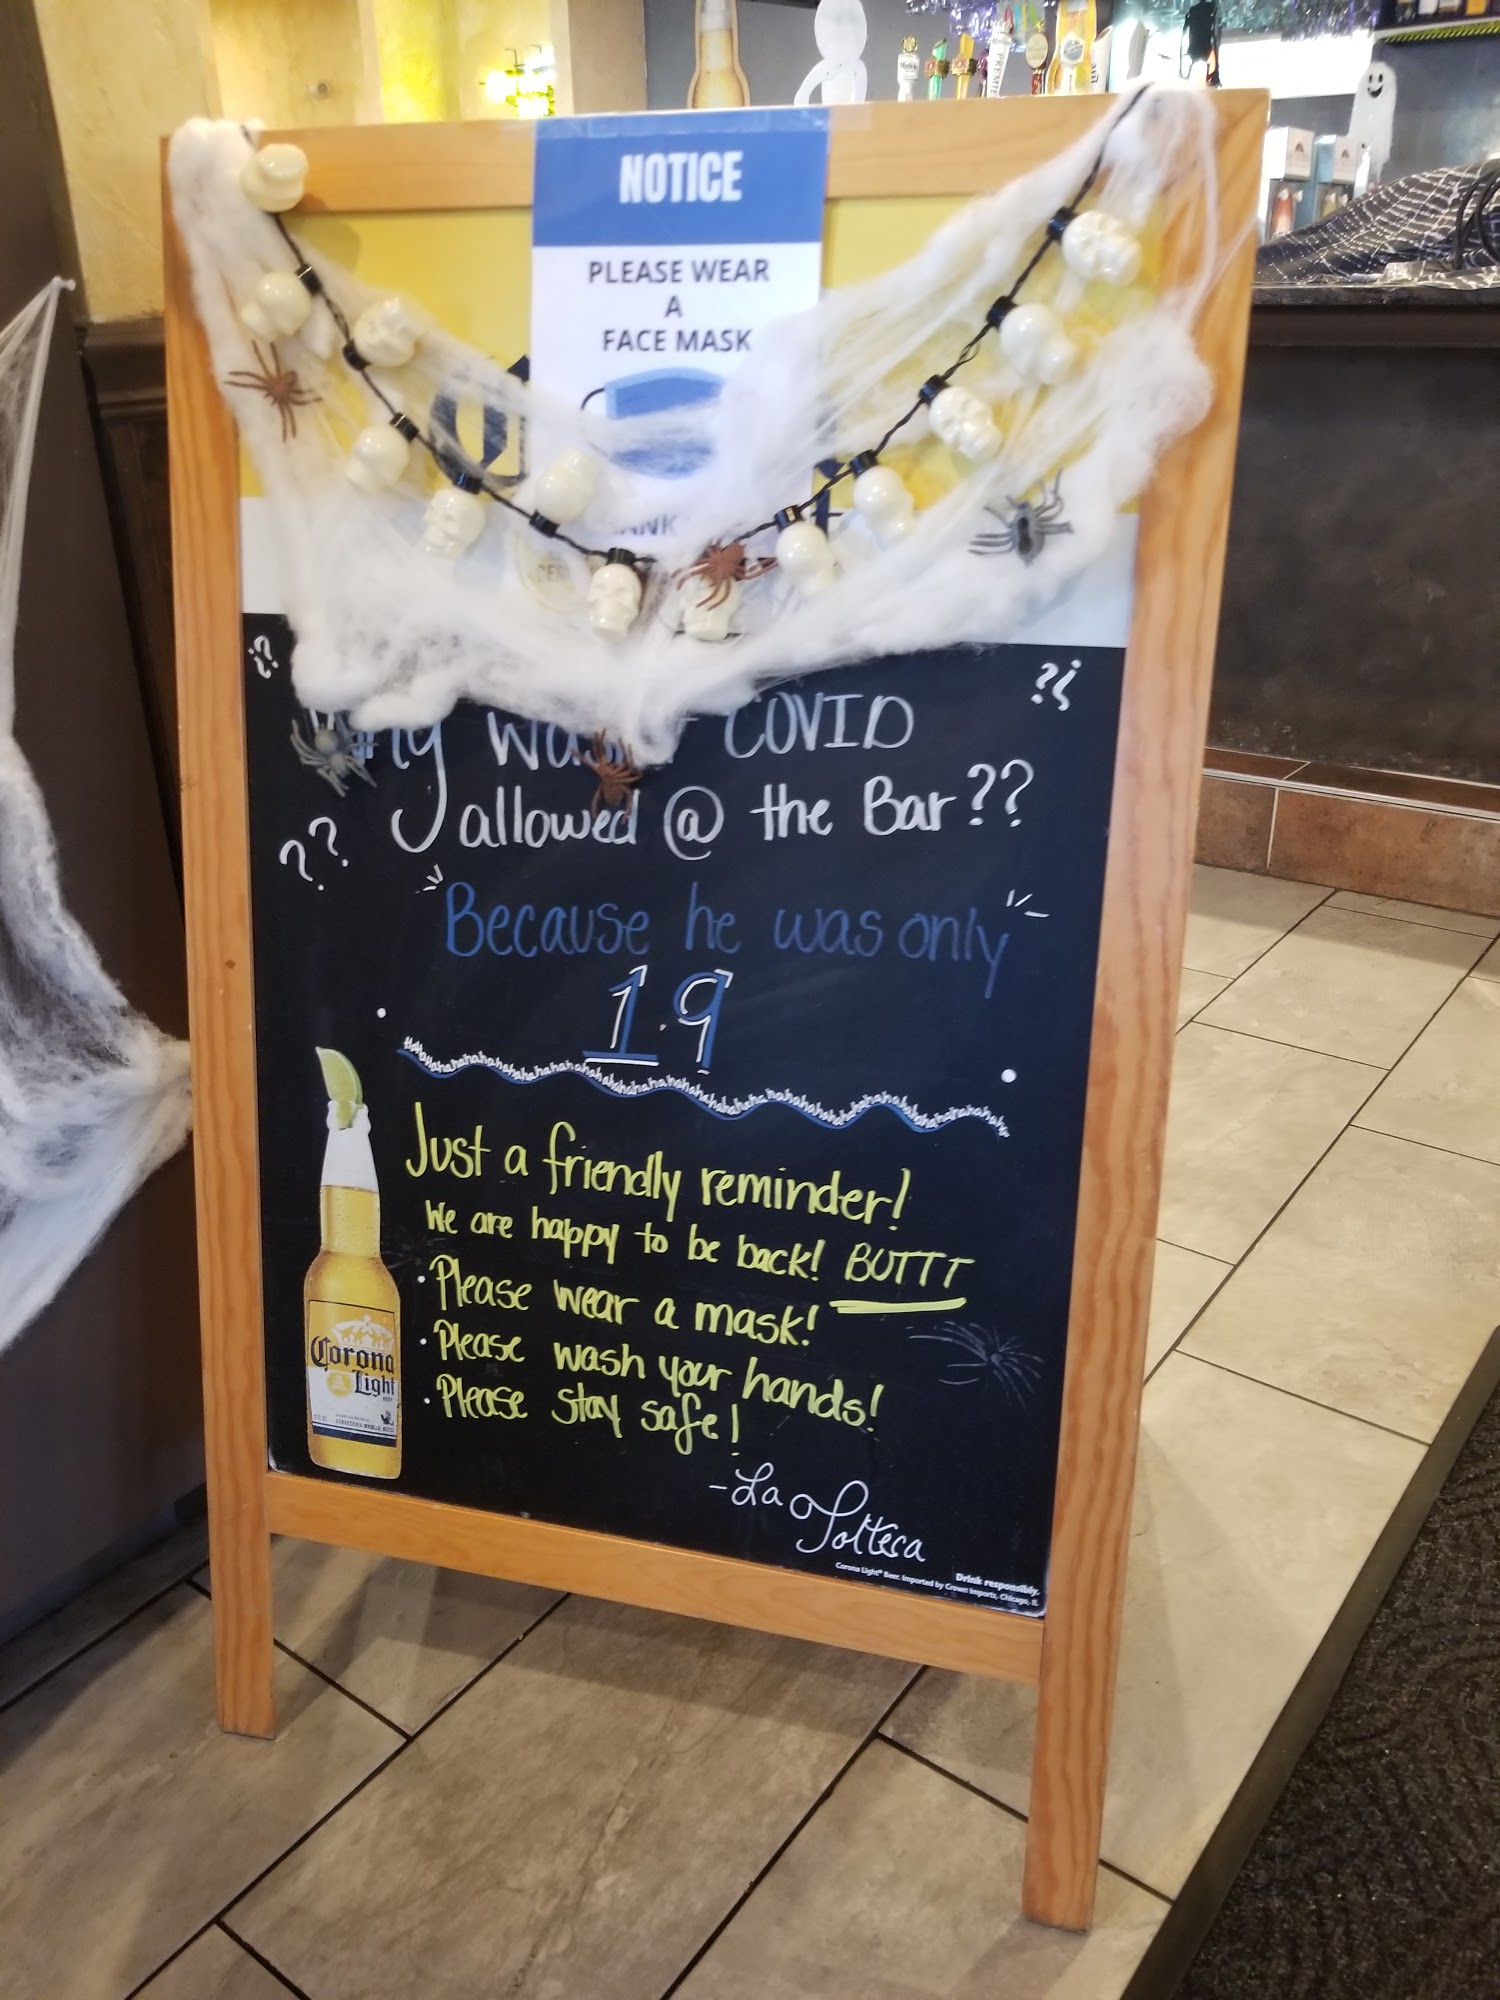 NOTICE
PLEASE WEAR
A
FACE MASK
¿?
?¿
COVID
allowed @ the Bar??
??
Because he was only
19
Just a friendly reminder!
We are happy to be back! BUTTT
• Please wear a mask!
• Please wash your hands!
• Please stay safe!
Corona
Light
-La Tolteca
Drink responsibly.
Corona Light® Beer. Imported by Crown Imports, Chicago, IL